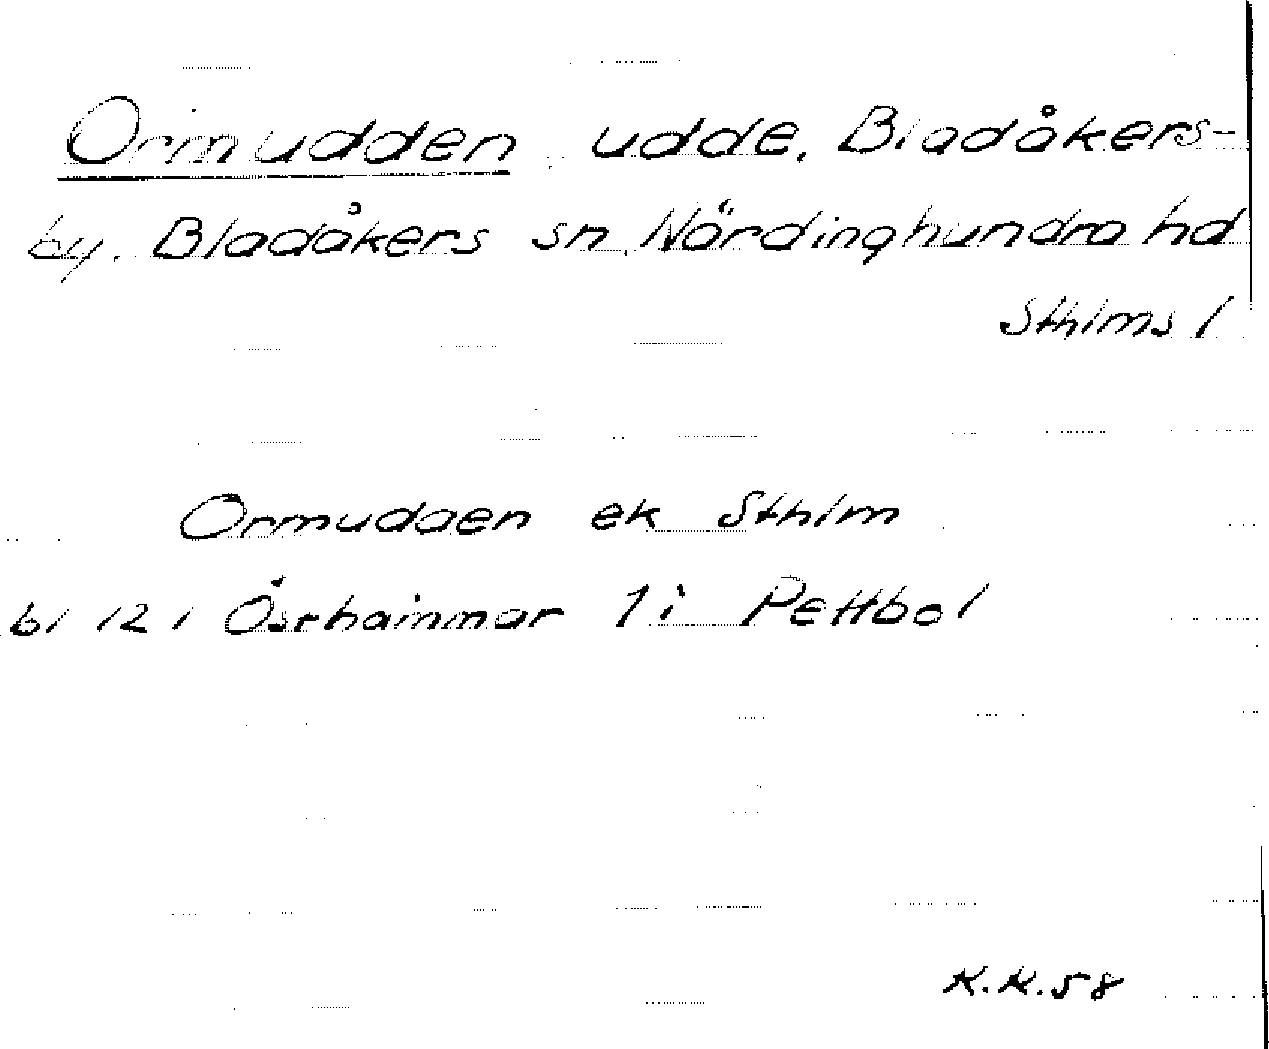 Ormudden, udde, Bladåkers-
by, Bladåkers sn, Närdinghundra hd
Sthlms l
Ormudden ek Sthlm
bl 121 Östhammar 1i Pettbol
K.K.58